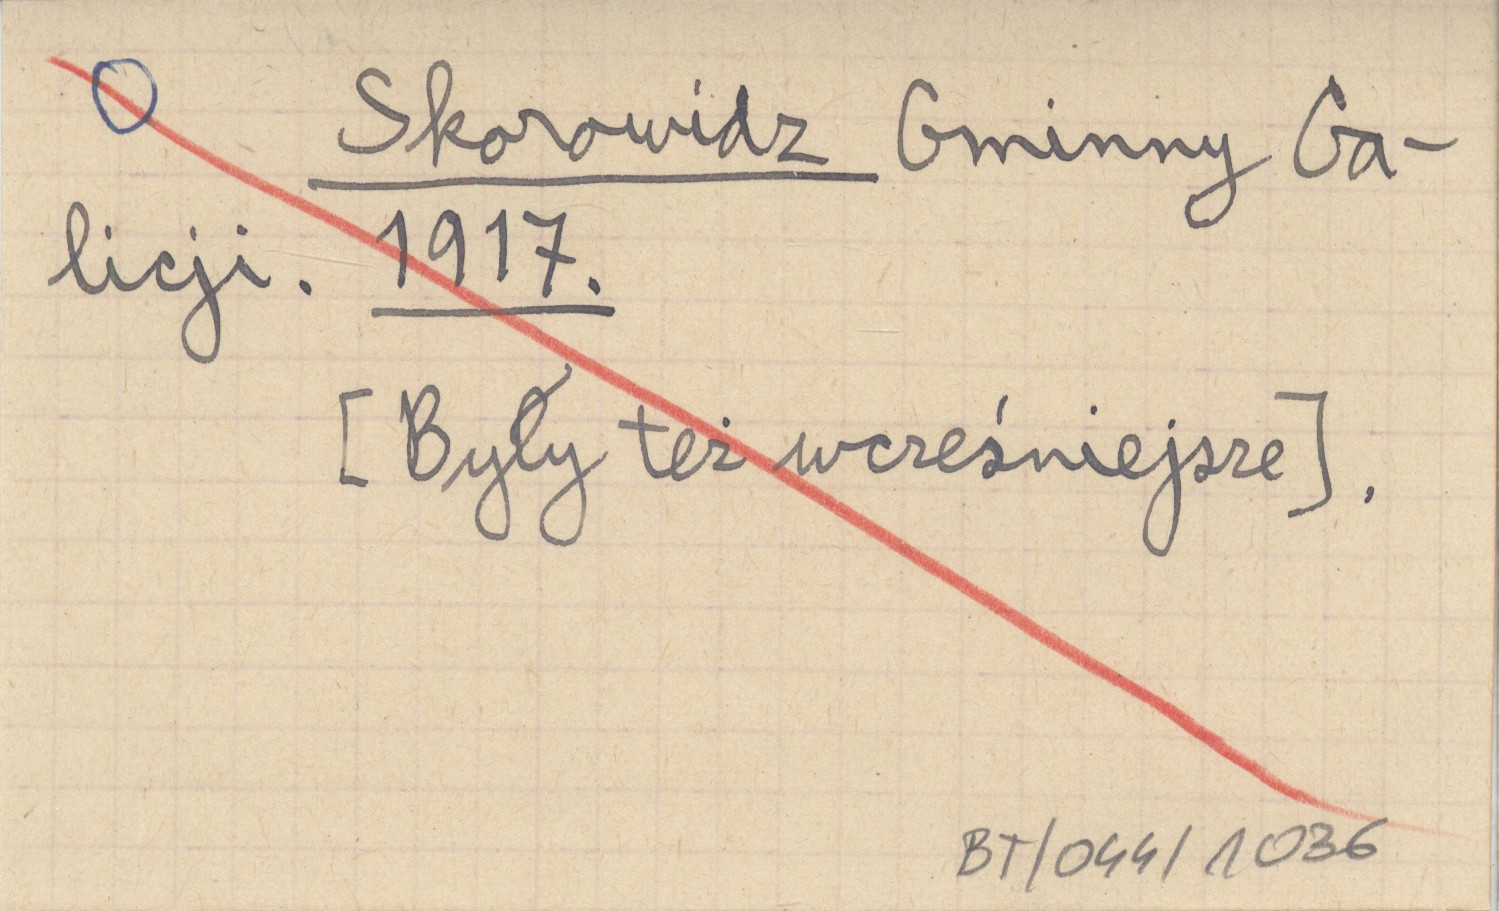 Skorowidz Gminny Ga-
licji. 1917.
[Były też wcześniejsze].
BT/044/1036